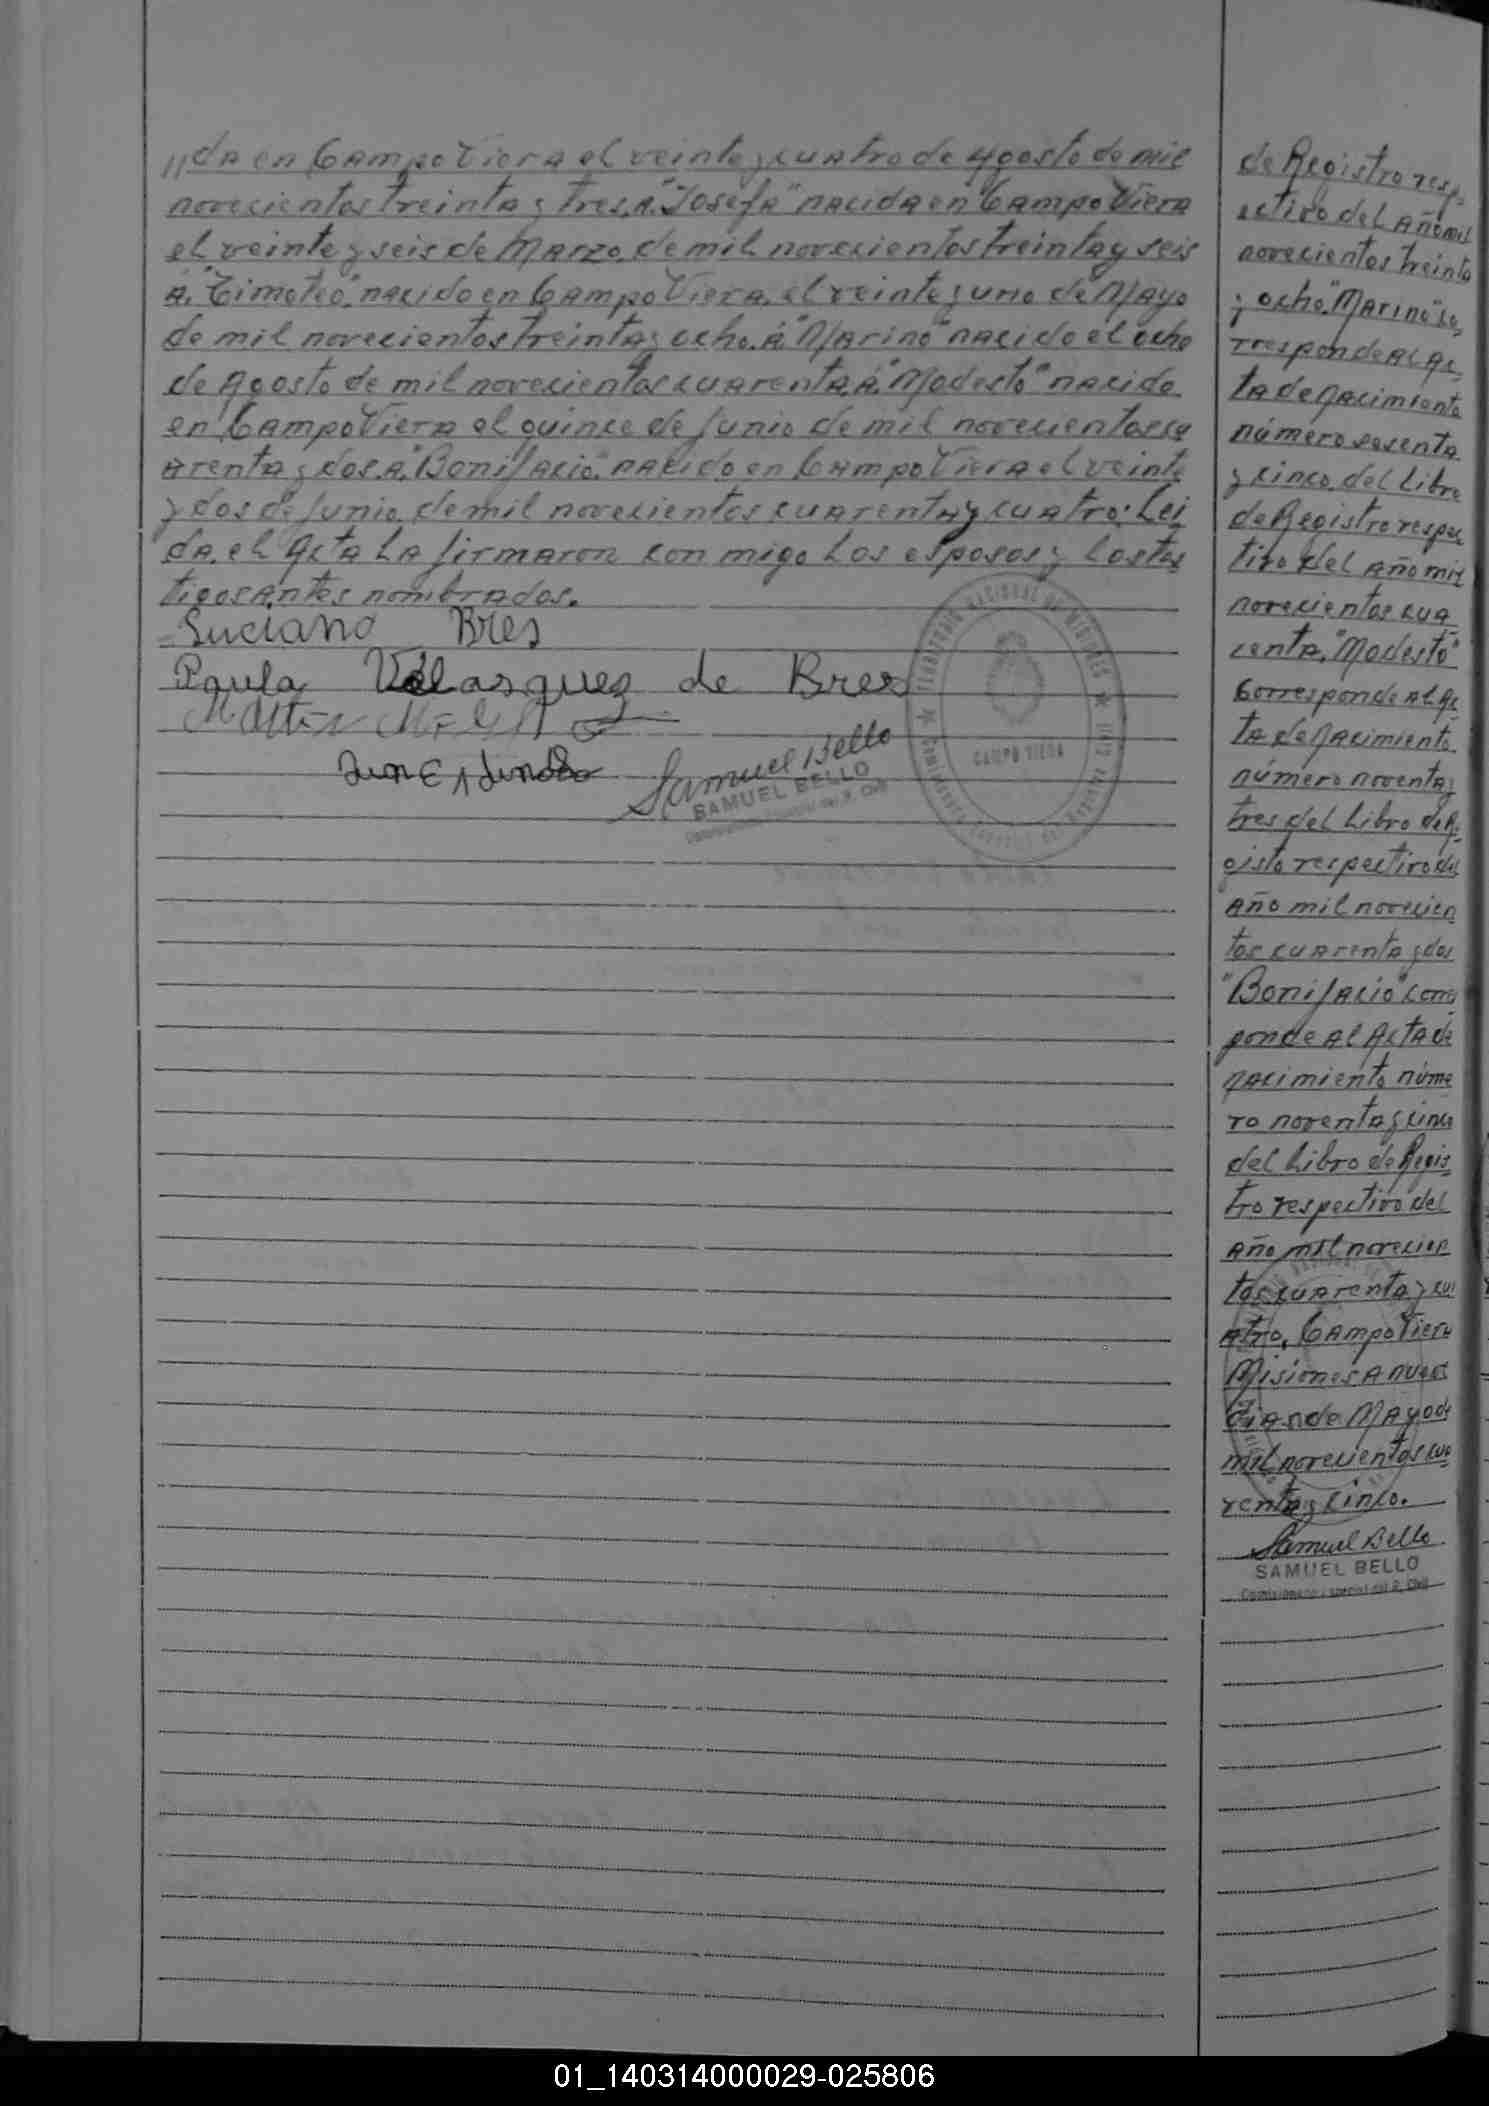 //da en Campo Viera el veinte y cuatro de Agosto de mil
novecientos treinta y tres. A. "Josefa" nacida en Campo Viera
el veinte y seis de Marzo de mil novecientos treinta y seis
A. "Timoteo" nacido en Campo Viera, el veinte y uno de Mayo
de mil novecientos treinta y ocho. á "Marino" nacido el ocho
de Agosto de mil novecientos cuarenta. á "Modesto" nacido
en Campo Viera el quince de Junio de mil novecientos cu
arenta y dos. A. "Bonifacio" nacido en Campo Viera el veinte
y dos de Junio de mil novecientos cuarenta y cuatro. Lei
da el Acta La firmaron con migo Los esposos y Los tes
tigos antes nombrados.
Luciano Bres
Paula Velasquez de Bres
Samuel Bello
SAMUEL BELLO
TERRITORIO NACIONAL DE MISIONES
CAMPO VIERA
de Registro resp-
ectivo del Año mil
novecientos treinta
y ocho. "Marino" co-
rresponde Al Ac-
ta de Nacimiento
número sesenta
y cinco del Libro
de Registro respec
tivo del Año mil
novecientos cua
renta. "Modesto"
Corresponde Al Ac
ta de Nacimiento
número noventa y
tres del Libro de Re-
gisto respectivo del
Año mil novecien
tos cuarenta y dos
"Bonifacio" corres
ponde Al Acta de
Nacimiento núme
ro noventa y cinco
del Libro de Regis-
tro respectivo del
Año mil novecien
tos cuarenta y cu
atro, Campo Viera
Misiones A nueve
dias de Mayo de
mil novecientos cua
renta y cinco.
Samuel Bello
SAMUEL BELLO
01_140314000029-025806